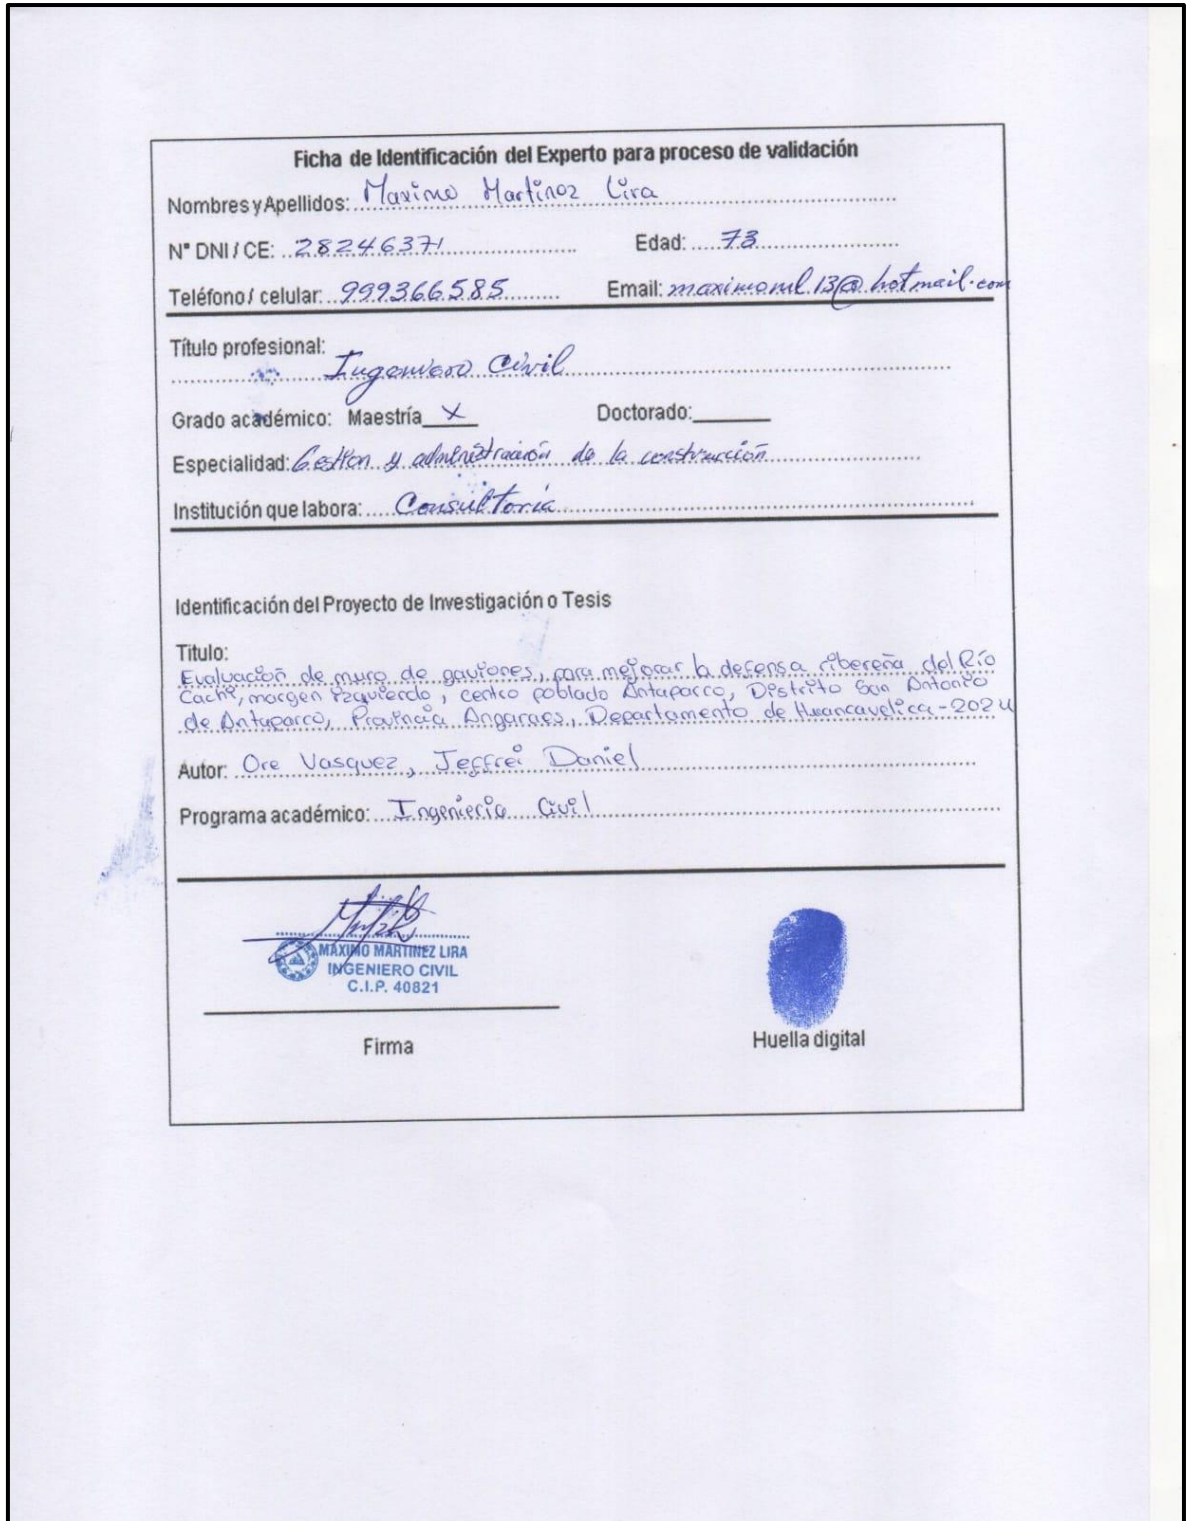 Ficha de Identificación del Experto para proceso de validación
Nombres y Apellidos: Maximo Martinez Lira
N° DNI / CE: 28246371 Edad: 73
Teléfono / celular: 999366585 Email: maximoml.13@hotmail.com
Título profesional:
Ingeniero Civil
Grado académico: Maestría X Doctorado:
Especialidad: Gestion y administración de la construcción
Institución que labora: Consultoria
Identificación del Proyecto de Investigación o Tesis
Titulo:
Evaluación de muro de gaviones, para mejorar la defensa ribereña del Río
Cachi, margen izquierdo, centro poblado Antaparco, Distrito San Antonio
de Antaparco, Provincia Angaraes, Departamento de Huancavelica-2024
Autor: Ore Vasquez, Jeffrei Daniel
Programa académico: Ingenieria Civil
MAXIMO MARTINEZ LIRA
INGENIERO CIVIL
C.I.P. 40821
Firma Huella digital